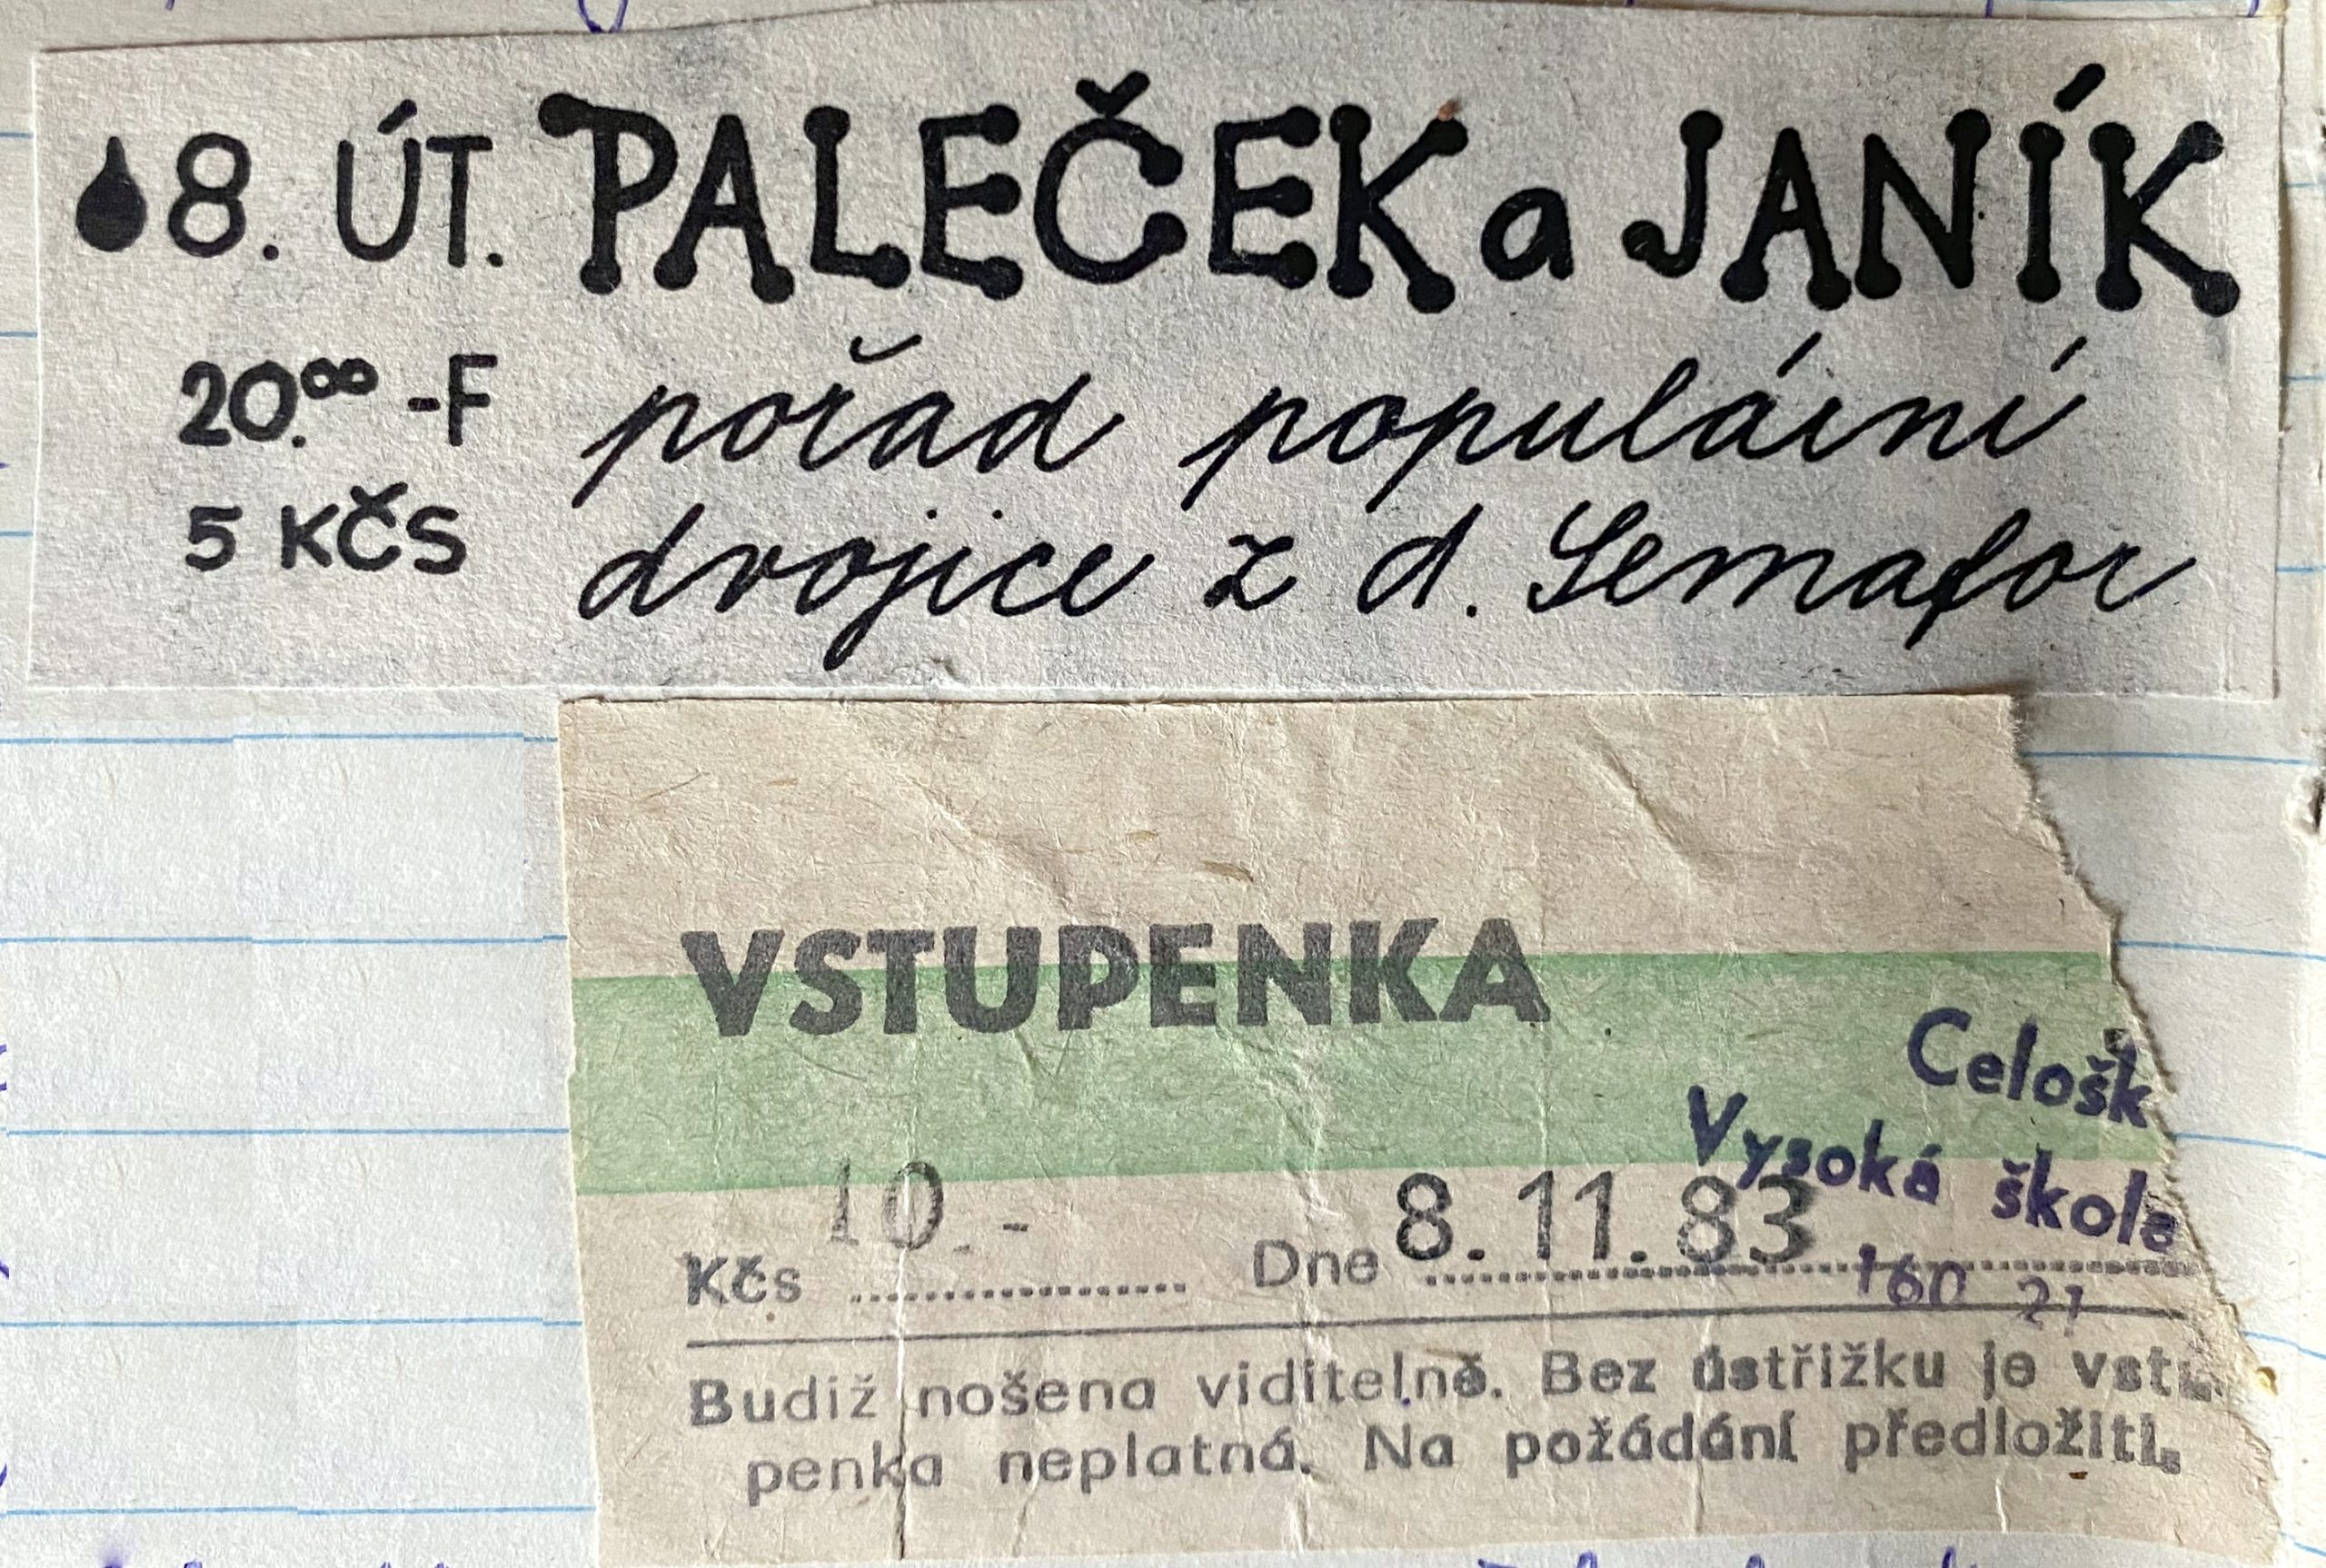 8. ÚT. PALEČEK a JANÍK
20.00 -F pořad populární
5 KČS dvojice z d. Semafor
VSTUPENKA
Celošk
Vysoká škola
Kčs 10.- Dne 8.11.83
160 21
Budiž nošena viditelně. Bez ústřižku je vstu-
penka neplatná. Na požádání předložiti.